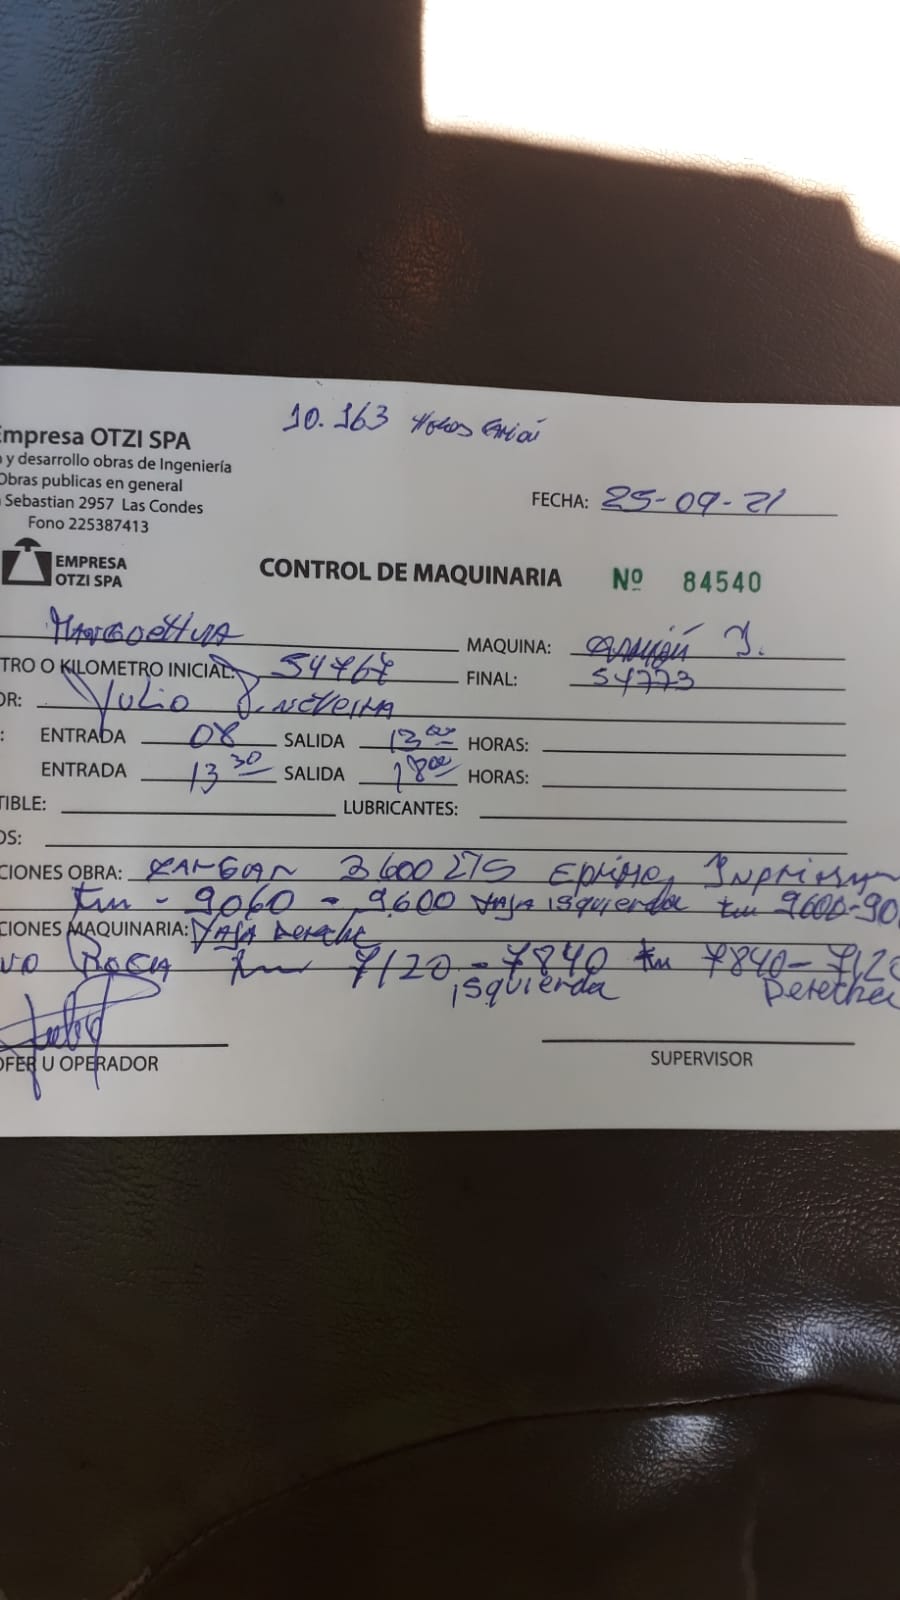 10.163 Horas Camión
Empresa OTZI SPA
y desarrollo obras de Ingeniería
Obras publicas en general
Sebastian 2957 Las Condes
Fono 225387413
FECHA: 25-09-21
EMPRESA
OTZI SPA
CONTROL DE MAQUINARIA Nº 84540
MAQUINA: Camión I.
TRO O KILOMETRO INICIAL: 54767 FINAL: 54773
OR: Julio
: ENTRADA 08 SALIDA 13 00 HORAS:
ENTRADA 13 30 SALIDA 18 00 HORAS:
TIBLE: LUBRICANTES:
OS:
CIONES OBRA: 3600 LTS
Km - 9060 - 9600 isquierda Km 9600-90
CIONES MAQUINARIA:
Km 7120-7840 Km 7840-7120
isquierda Derecha
OFER U OPERADOR SUPERVISOR